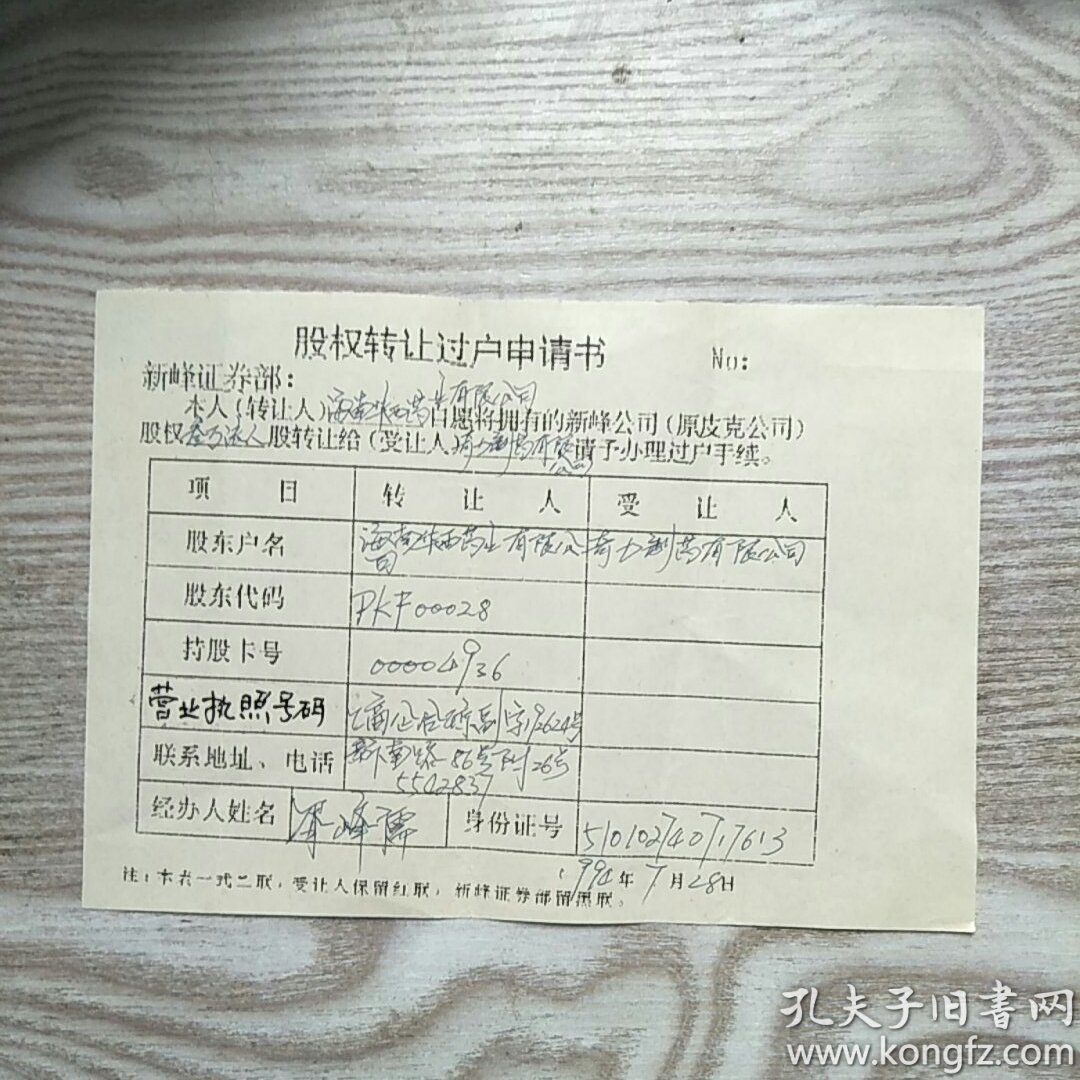 股权转让过户申请书 No:
新峰证券部:
本人(转让人)海南华西药业有限公司自愿将拥有的新峰公司(原皮克公司)
股权叁万 股转让给(受让人)奇力制药有限公司请予办理过户手续。
项目 转让人 受让人
股东户名 海南华西药业有限公司 奇力制药有限公司
股东代码 PKF00028
持股卡号 00004936
营业执照号码 工商企合琼副字 号
联系地址、电话 新南路86号附26号
5502837
经办人姓名 峰儒 身份证号 510102740717613
1994年7月28日
注:本表一式二联,受让人保留红联,新峰证券部留黑联。
孔夫子旧书网
www.kongfz.com